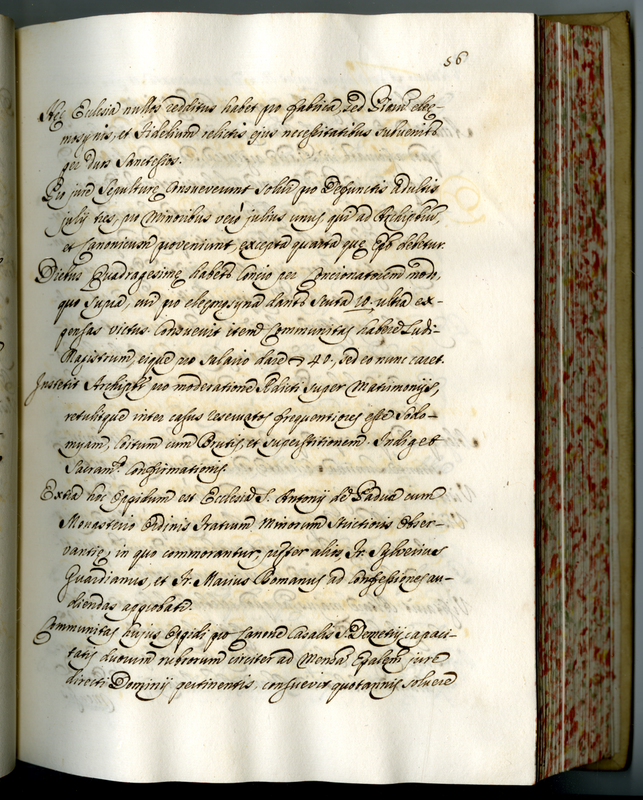 56
Hec Ecclesia nullos redditus habet pro fabrica, sed Piam.s elee-
mosynis, et Fidelium relictis ejus necessitatibus subvenitr
per duos Sanctesios.
Pro jure Sepulture consueverunt solui pro Defunctis Adultis
julij tres, pro Minoribus verò julius unus, qui ad Archipbrum,
et Canonicum proveniunt excepta quarta que Epo debetur.
Diebus Quadragesime habetr Concio per Concionatorem modo,
quo supra, cui pro eleemosyna dantr Scuta 20. ultra ex-
pensas victus. Consuevit item Communitas habere Ludi-
Magistrum, eique pro salario dare 40., sed eo nunc caret.
Institit Archipbr pro moderatione Edicti super Matrimonijs,
retulitque inter casus reservatos frequentiores esse Sodo-
myam, Coitum cum Brutis, et superstitionem. Indiget
Sacram.to Confirmationis.
Extra hoc Oppidum est Ecclesia S. Antonij de Padua cum
Monasterio Ordinis Fratrum Minorum Strictioris Obser-
vantie, in quo commorantur, preter alios, Fr. Sylverius
Guardianus, et Fr. Marius Romanus ad Confessiones au-
diendas approbati.
Communitas hujus Oppidi pro Canone Casalis S. Demetrij capaci-
tatis duorum rubrorum circiter ad Mensa Epalem jure
directi Dominij pertinentis, consuevit quotannis solvere